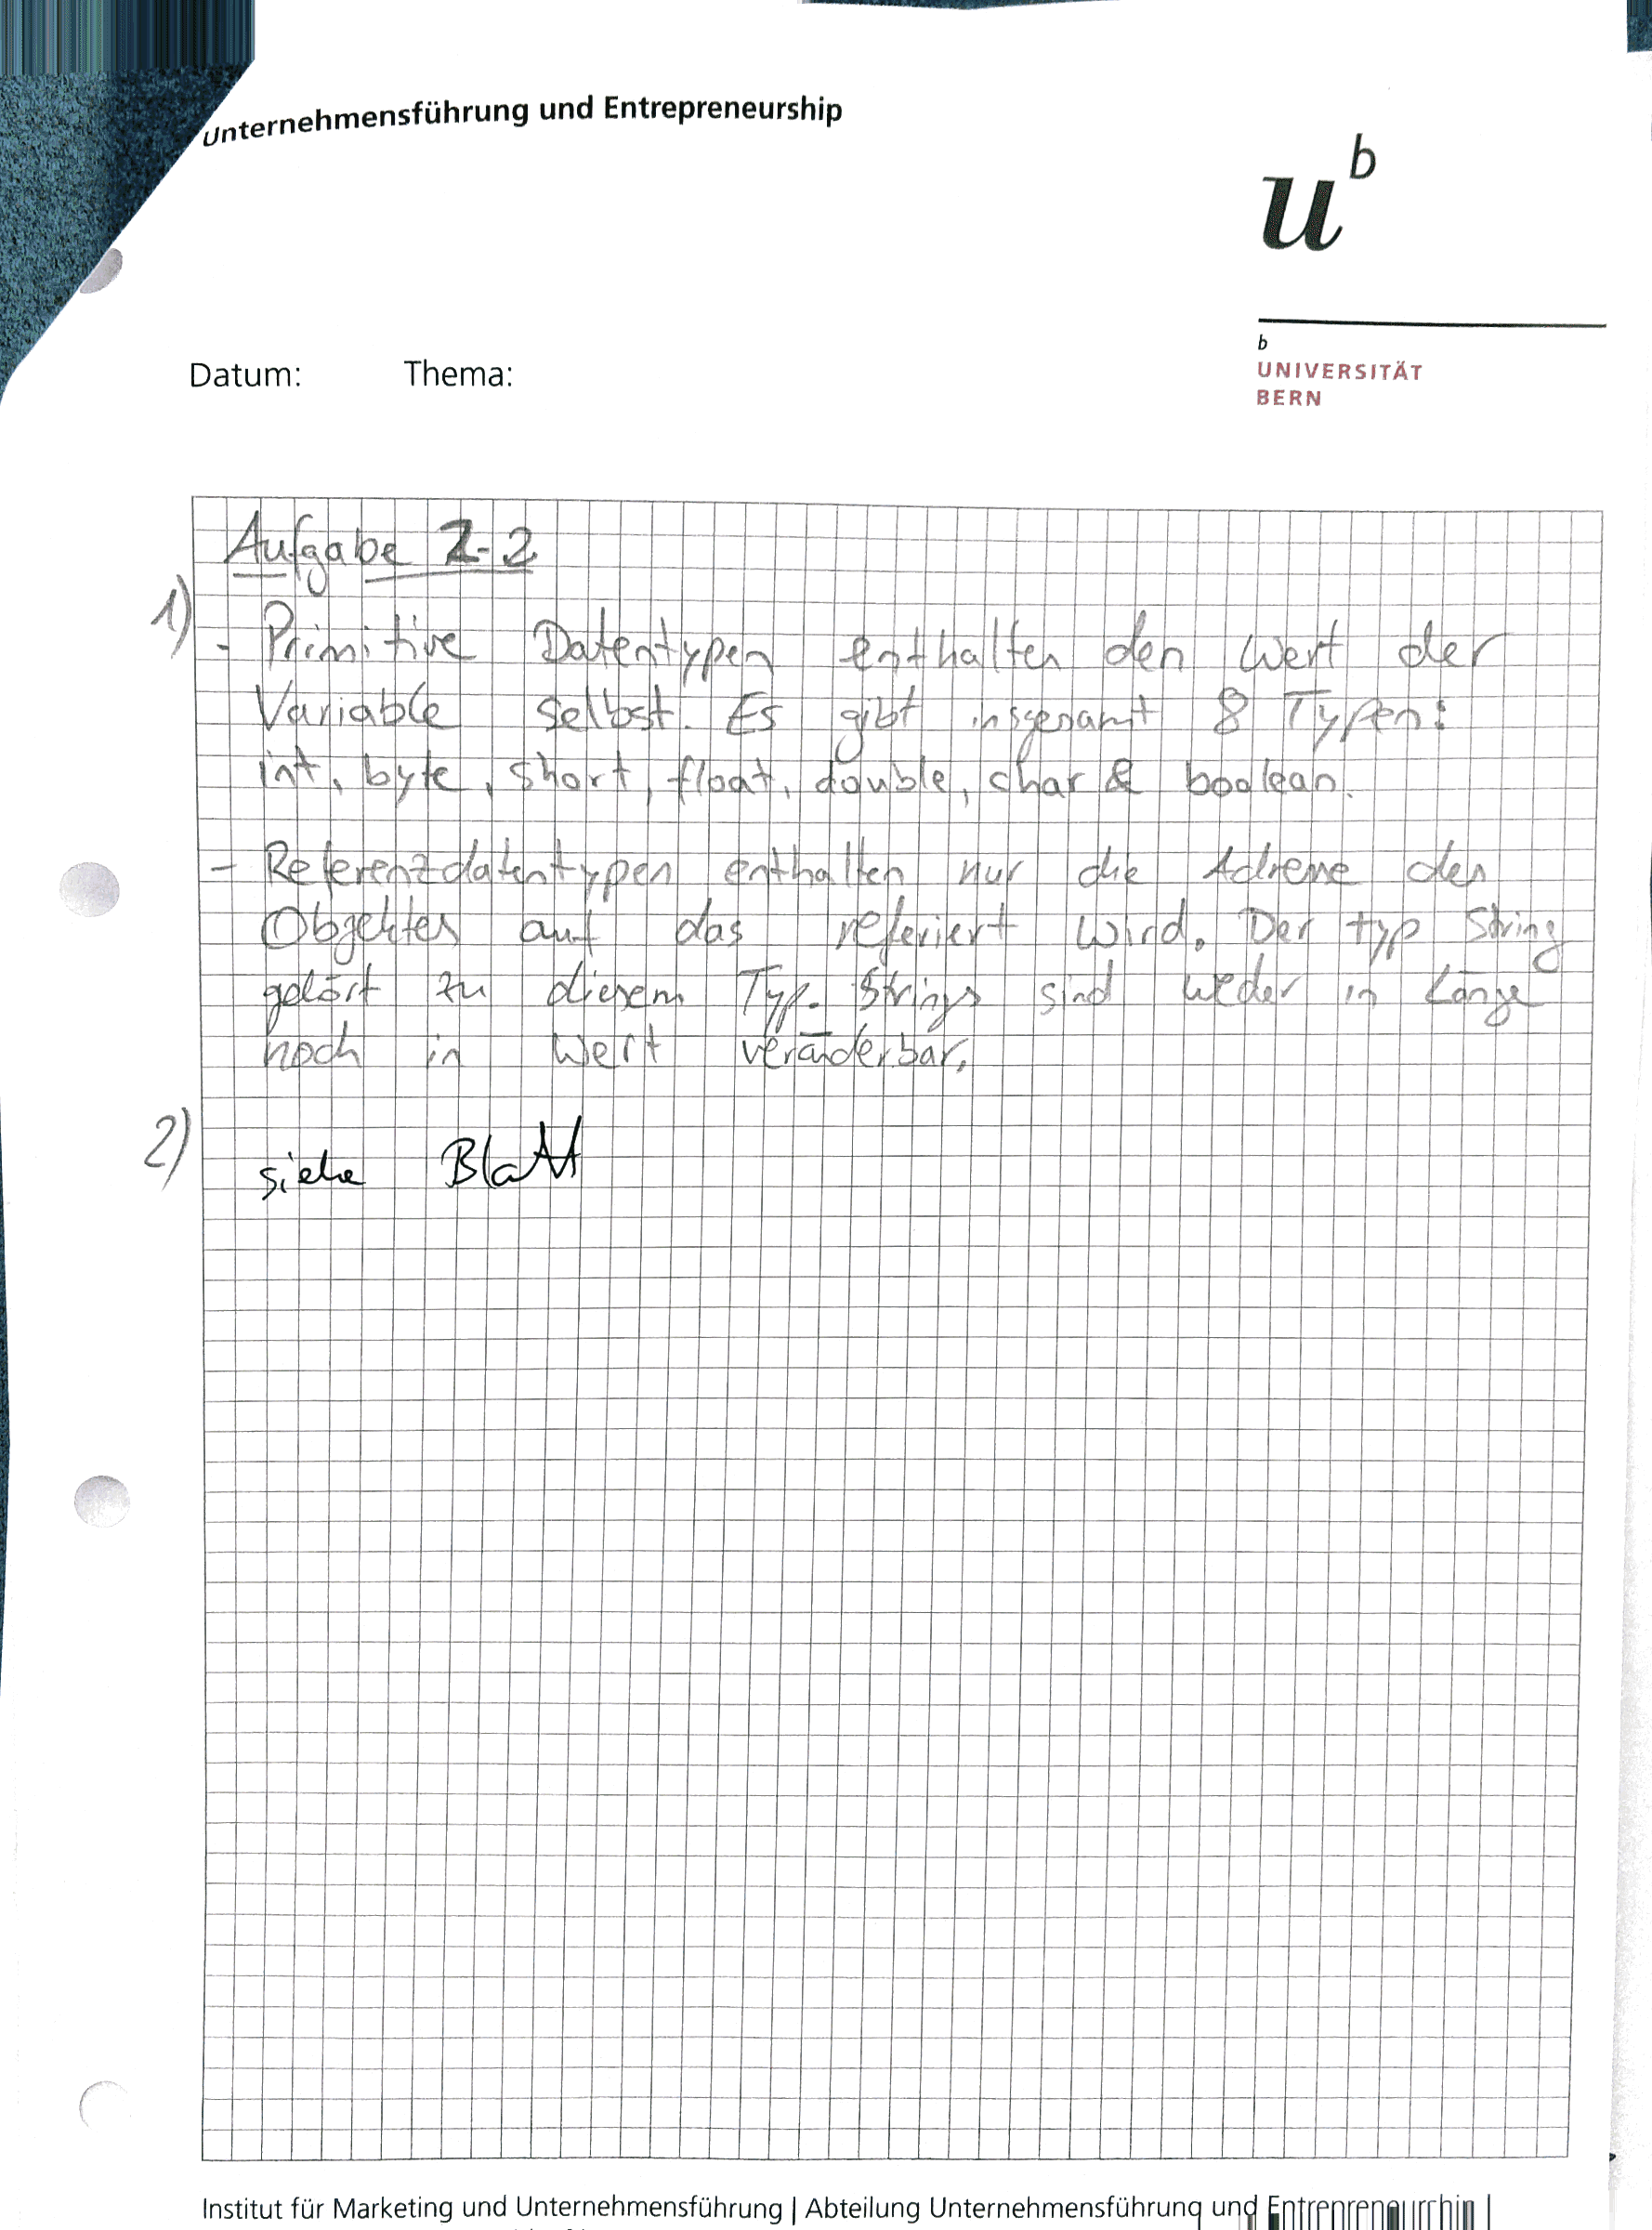 Unternehmensführung und Entrepreneurship
u b
b
UNIVERSITÄT
BERN
Datum: Thema:
Aufgabe 2-2
1)
- Primitive Datentypen enthalten den Wert der
Variable selbst. Es gibt insgesamt 8 Typen:
int, byte, short, float, double, char & boolean.
- Referenzdatentypen enthalten nur die Adresse des
Objektes auf das referiert wird. Der typ String
gehört zu diesem Typ. Strings sind weder in Länge
noch in Wert veränderbar.
2) siehe Blatt
Institut für Marketing und Unternehmensführung | Abteilung Unternehmensführung und Entrepreneurship |